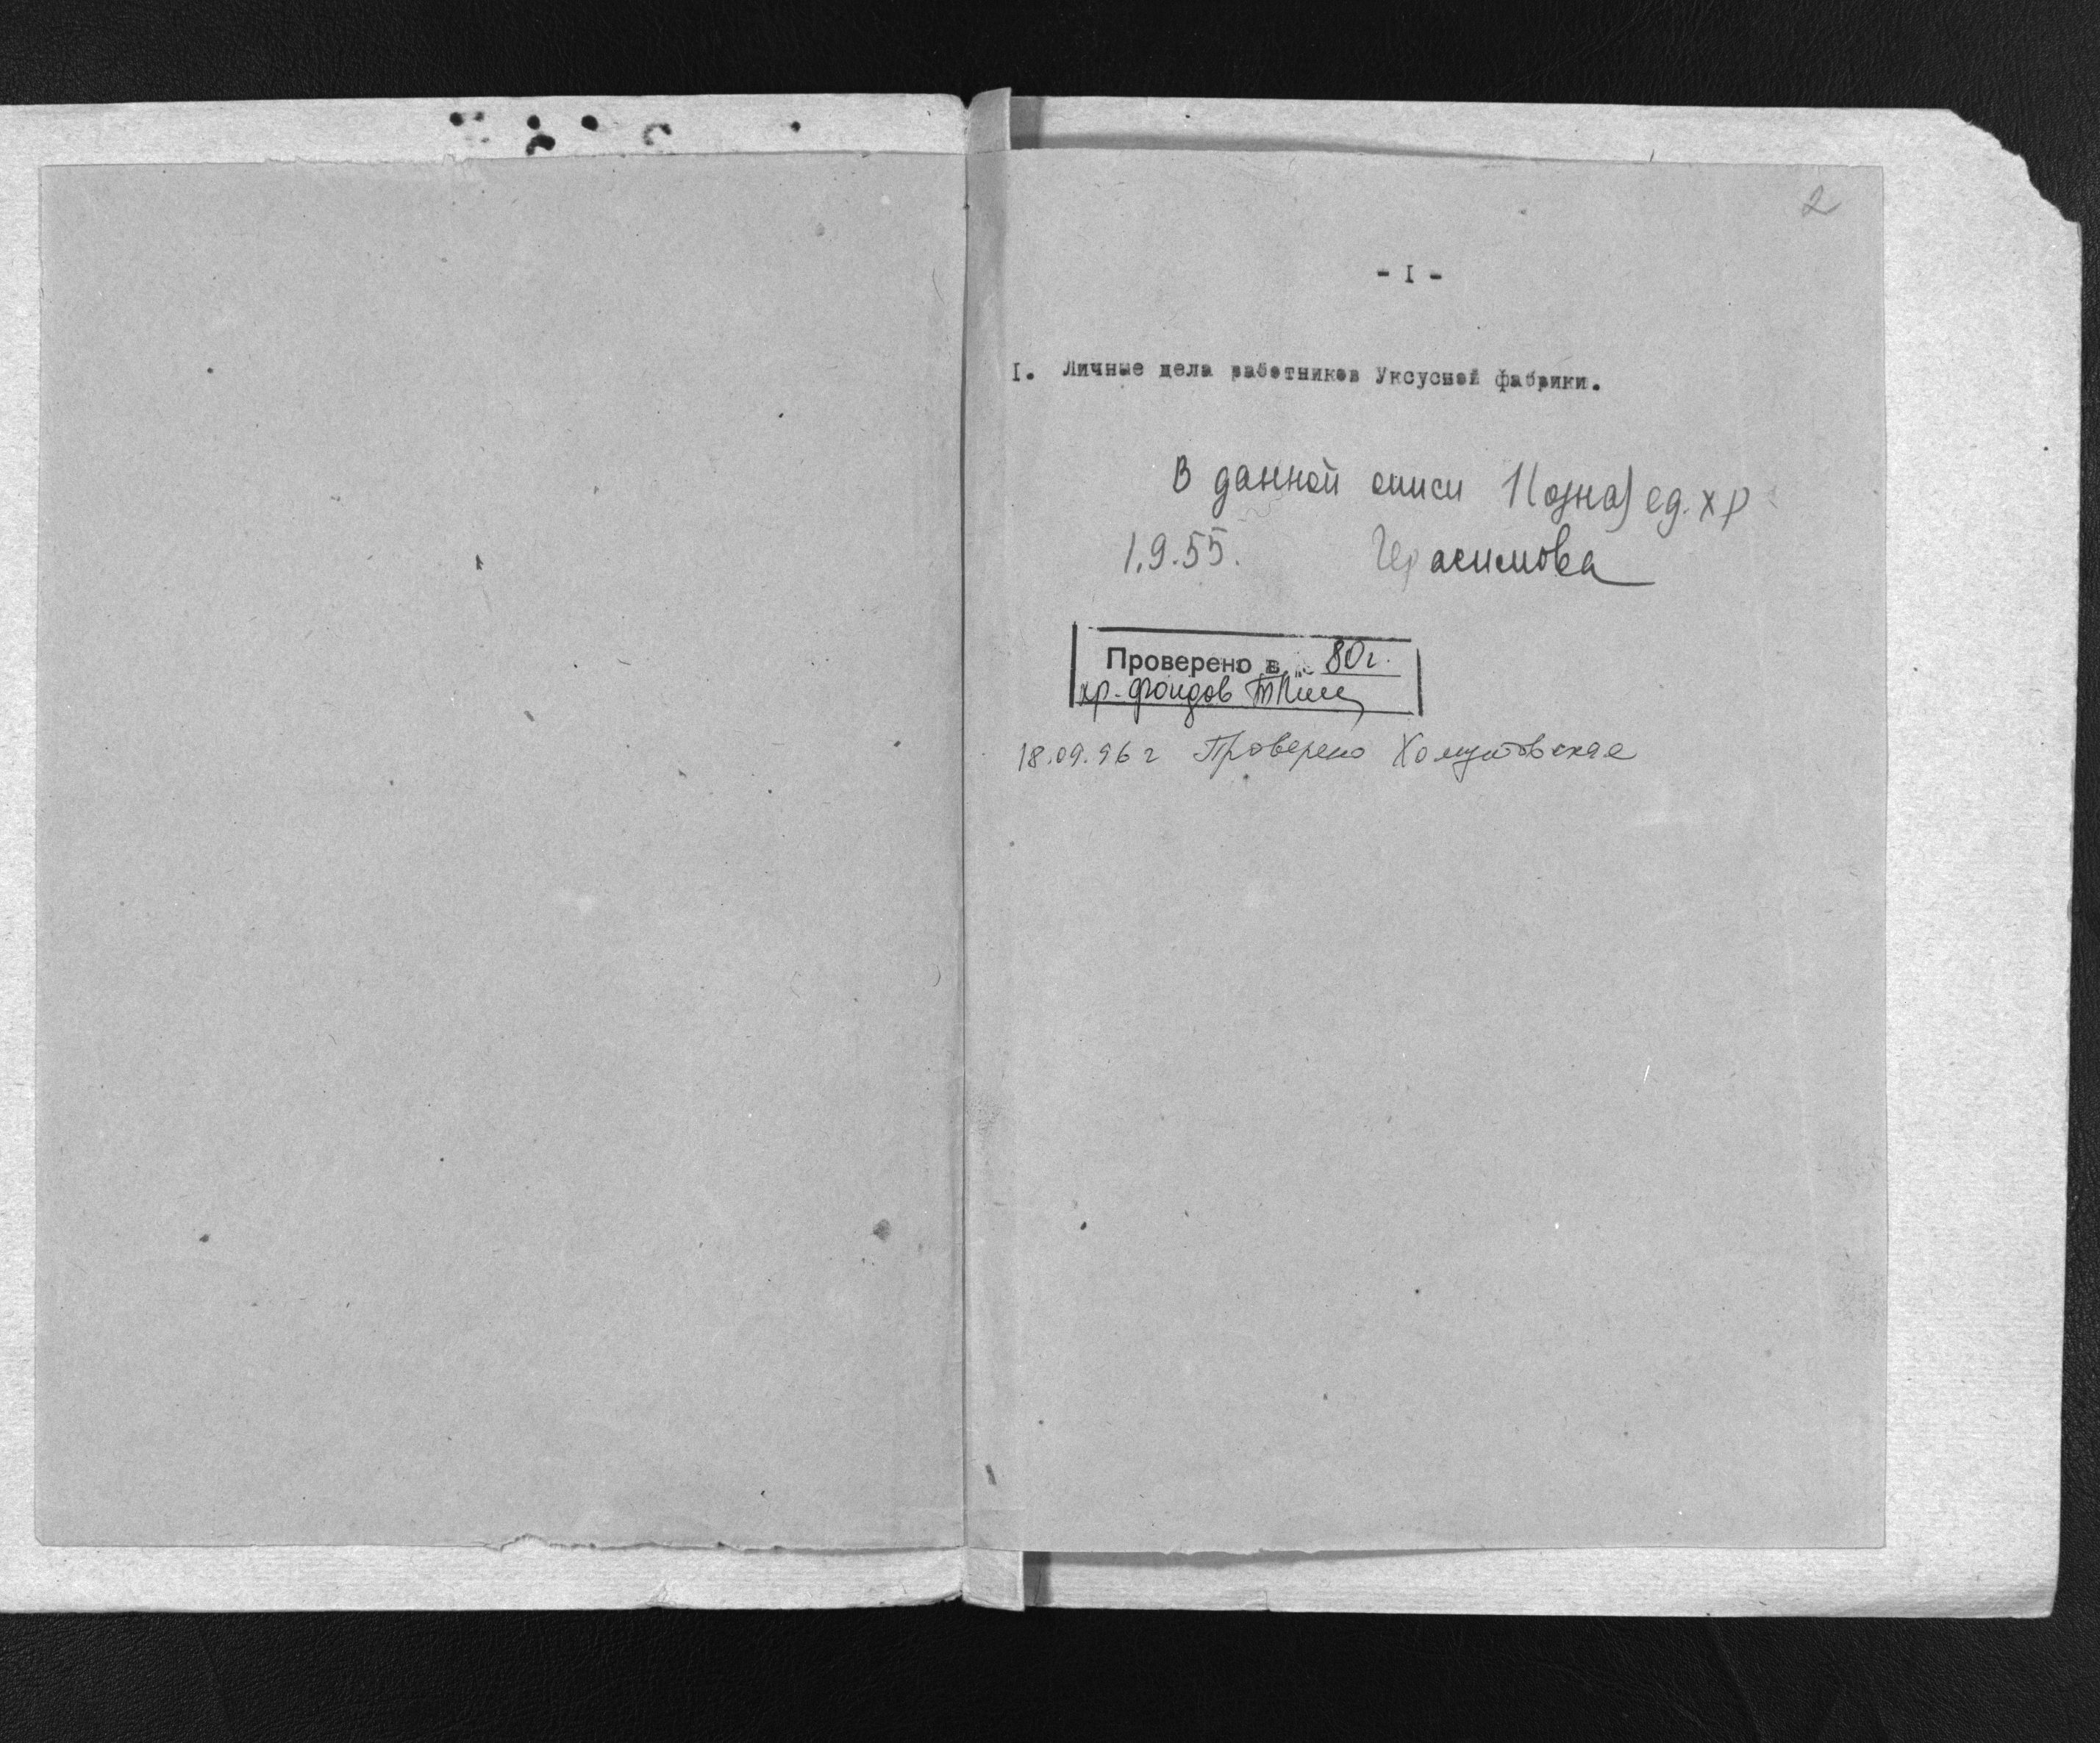 2
- I -
I. Личные дела работников Уксусной фабрики.
В данной описи 1(одна) ед. хр
1.9.55. Герасимова
Проверено в 80г.
хр. фондов
18.09.96 г Проверено Хомутовская